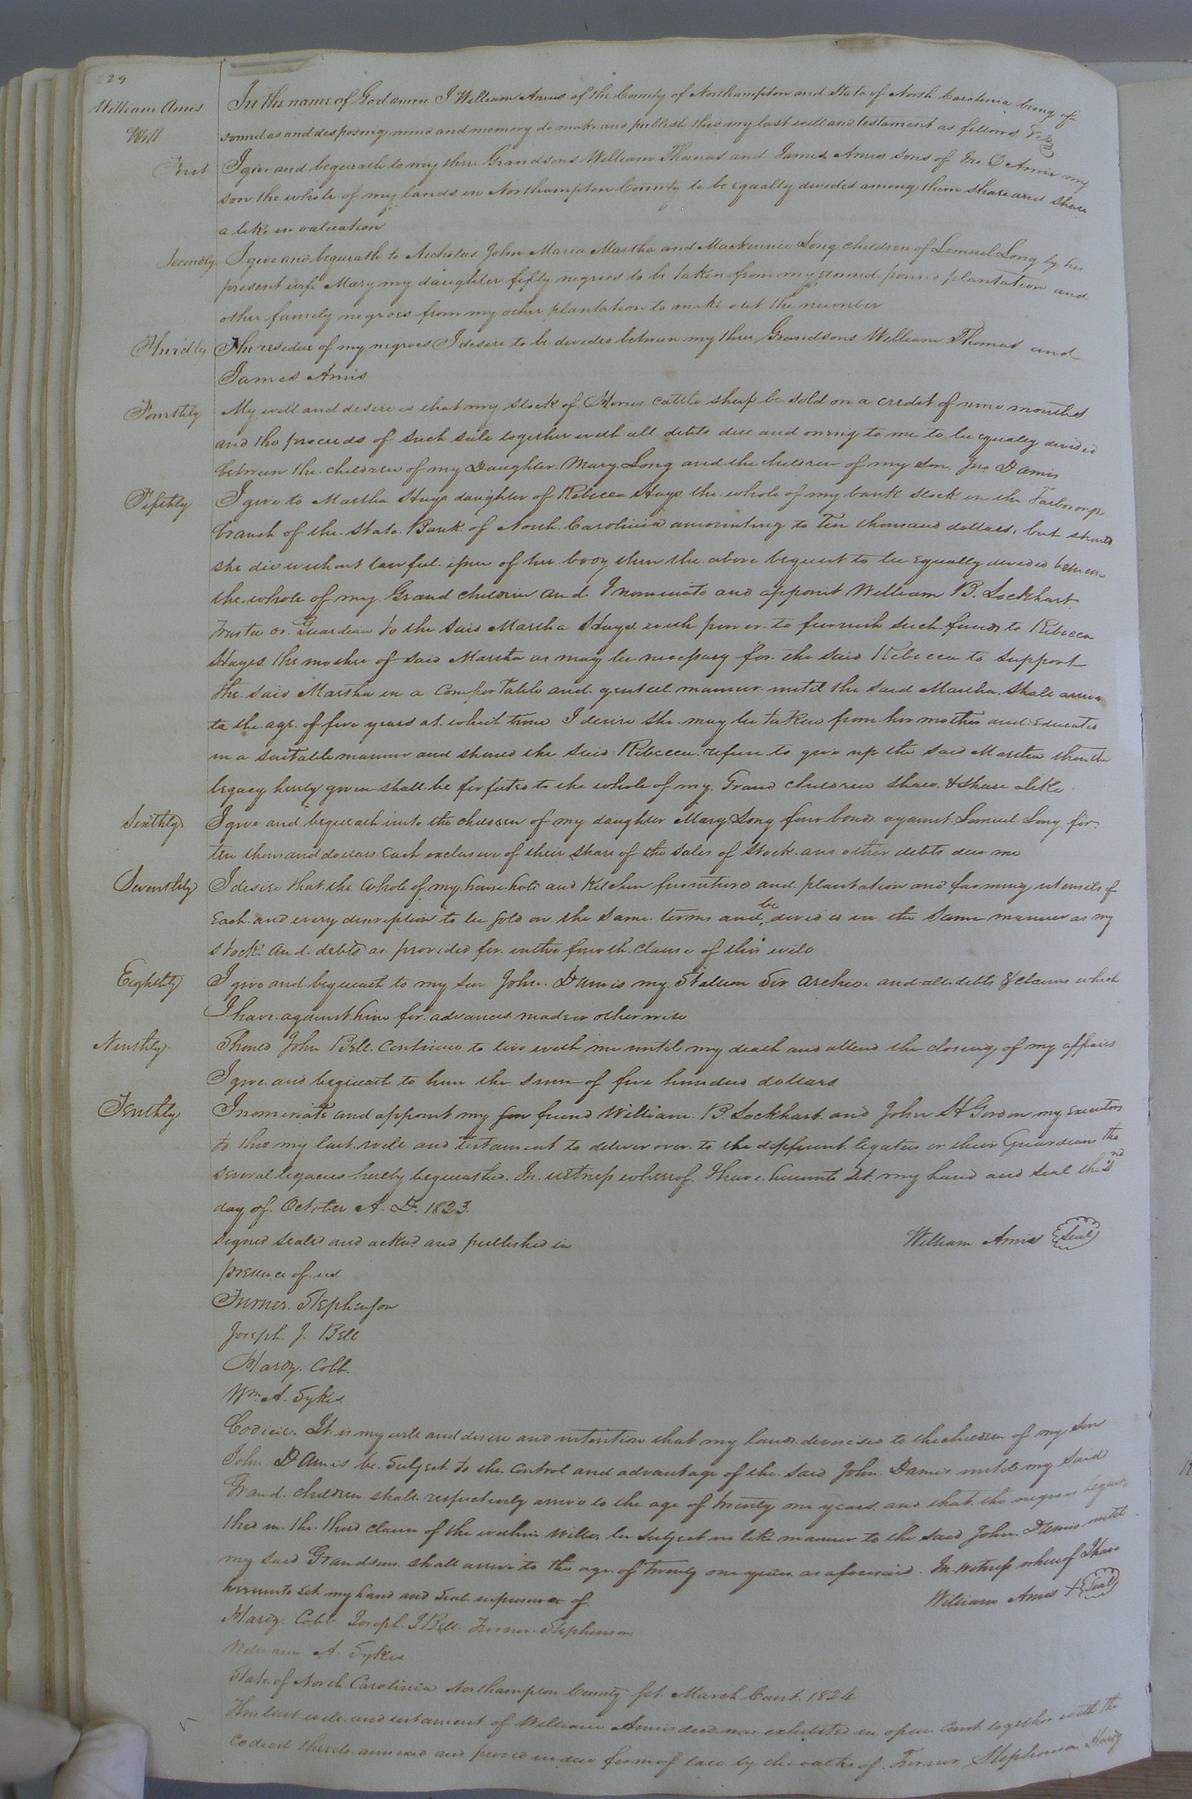 229
William Amis
Will
In the name of God amen I William Amis of the County of Northampton and State of North Carolina being of
sound and disposing mind and memory do make and publish this my last will and testament as follows Viz
First I give and bequeath to my three Grandsons William Thomas and James Amis sons of Jno D Amis my
son the whole of my lands in Northampton County to be equally divided among them share and share
alike in valuation
Secondly I give and bequeath to Nicholas John Maria Martha and Mackerine Long children of Lemuel Long by his
present wife Mary my daughter fifty negroes to be taken from my plantation and
other family negroes from my other plantation to make out the number
Thirdly The residue of my negroes I desire to be divided between my three Grandsons William Thomas and
James Amis
Fourthly My will and desire is that my stock of Horses cattle sheep be sold on a credit of nine months
and the proceeds of such sale together with all debts due and owing to me to be equally divided
between the children of my Daughter Mary Long and the children of my son Jno D Amis
Fifthly I give to Martha Hays daughter of Rebecca Hays the whole of my bank stock in the Tarborough
branch of the State Bank of North Carolina amounting to Ten thousand dollars, but should
she die without lawful issue of her body then the above bequest to be Equally divided between
the whole of my Grand children and I nominate and appoint William B. Lockhart
Trustee or Guardian to the said Martha Hays with power to furnish such funds to Rebecca
Hayes the mother of said Martha as may be necessary for the said Rebecca to support
the said Martha in a comfortable and genteel manner until the said Martha shall arrive
to the age of five years at which time I desire she may be taken from her mother and Educated
in a suitable manner and should the said Rebecca refuse to give up the said Martha then the
legacy hereby given shall be forfeited to the whole of my Grand children share & share alike
Sixthly I give and bequeath unto the children of my daughter Mary Long four bonds against Lemuel Long for
ten thousand dollars Each exclusive of their share of the sales of stock and other debts due me
Seventhly I desire that the whole of my household and Kitchen furniture and plantation and farming utensils of
Each and every description to be sold on the same terms and be divided in the same manner as my
stock and debts as provided for in the fourth clause of this will
Eighthly I give and bequeath to my son John D Amis my Stallion Sir Archie and all debts & claims which
I have against him for advances made or otherwise
Ninthly Should John Bell continue to live with me until my death and attend the closing of my affairs
I give and bequeath to him the sum of five hundred dollars
Tenthly I nominate and appoint my friend William B Lockhart and John H Gordon my Executors
to this my last will and testament to deliver over to the different legatees or their Guardians the
several legacies hereby bequeathed. In witness whereof I have hereunto set my hand and seal the 2nd
day of October A. D. 1823.
signed sealed and ackd and published in William Amis (Seal)
presence of us
Turner Stephenson
Joseph J. Bell
Hardy Cobb
Wm A. Sykes
Codicil. It is my will and desire and intention that my lands devised to the children of my Son
John D Amis be Subject to the control and advantage of the said John D Amis until my said
Grand children shall respectively arrive to the age of twenty one years and that the negroes bequea
thed in the third clause of the within Will be Subject in like manner to the said John D Amis until
my said Grandsons shall arrive to the age of twenty one years as aforesaid. In witness whereof I have
hereunto set my hand and Seal in presence of William Amis (Seal)
Hardy Cobb Joseph J Bell Turner Stephenson
William A. Sykes
State of North Carolina Northampton County fst March Court 1824
This last will and testament of William Amis decd was exhibited in open Court together with the
codicil thereto annexed and proved in due form of law by the oaths of Turner Stephenson Hardy